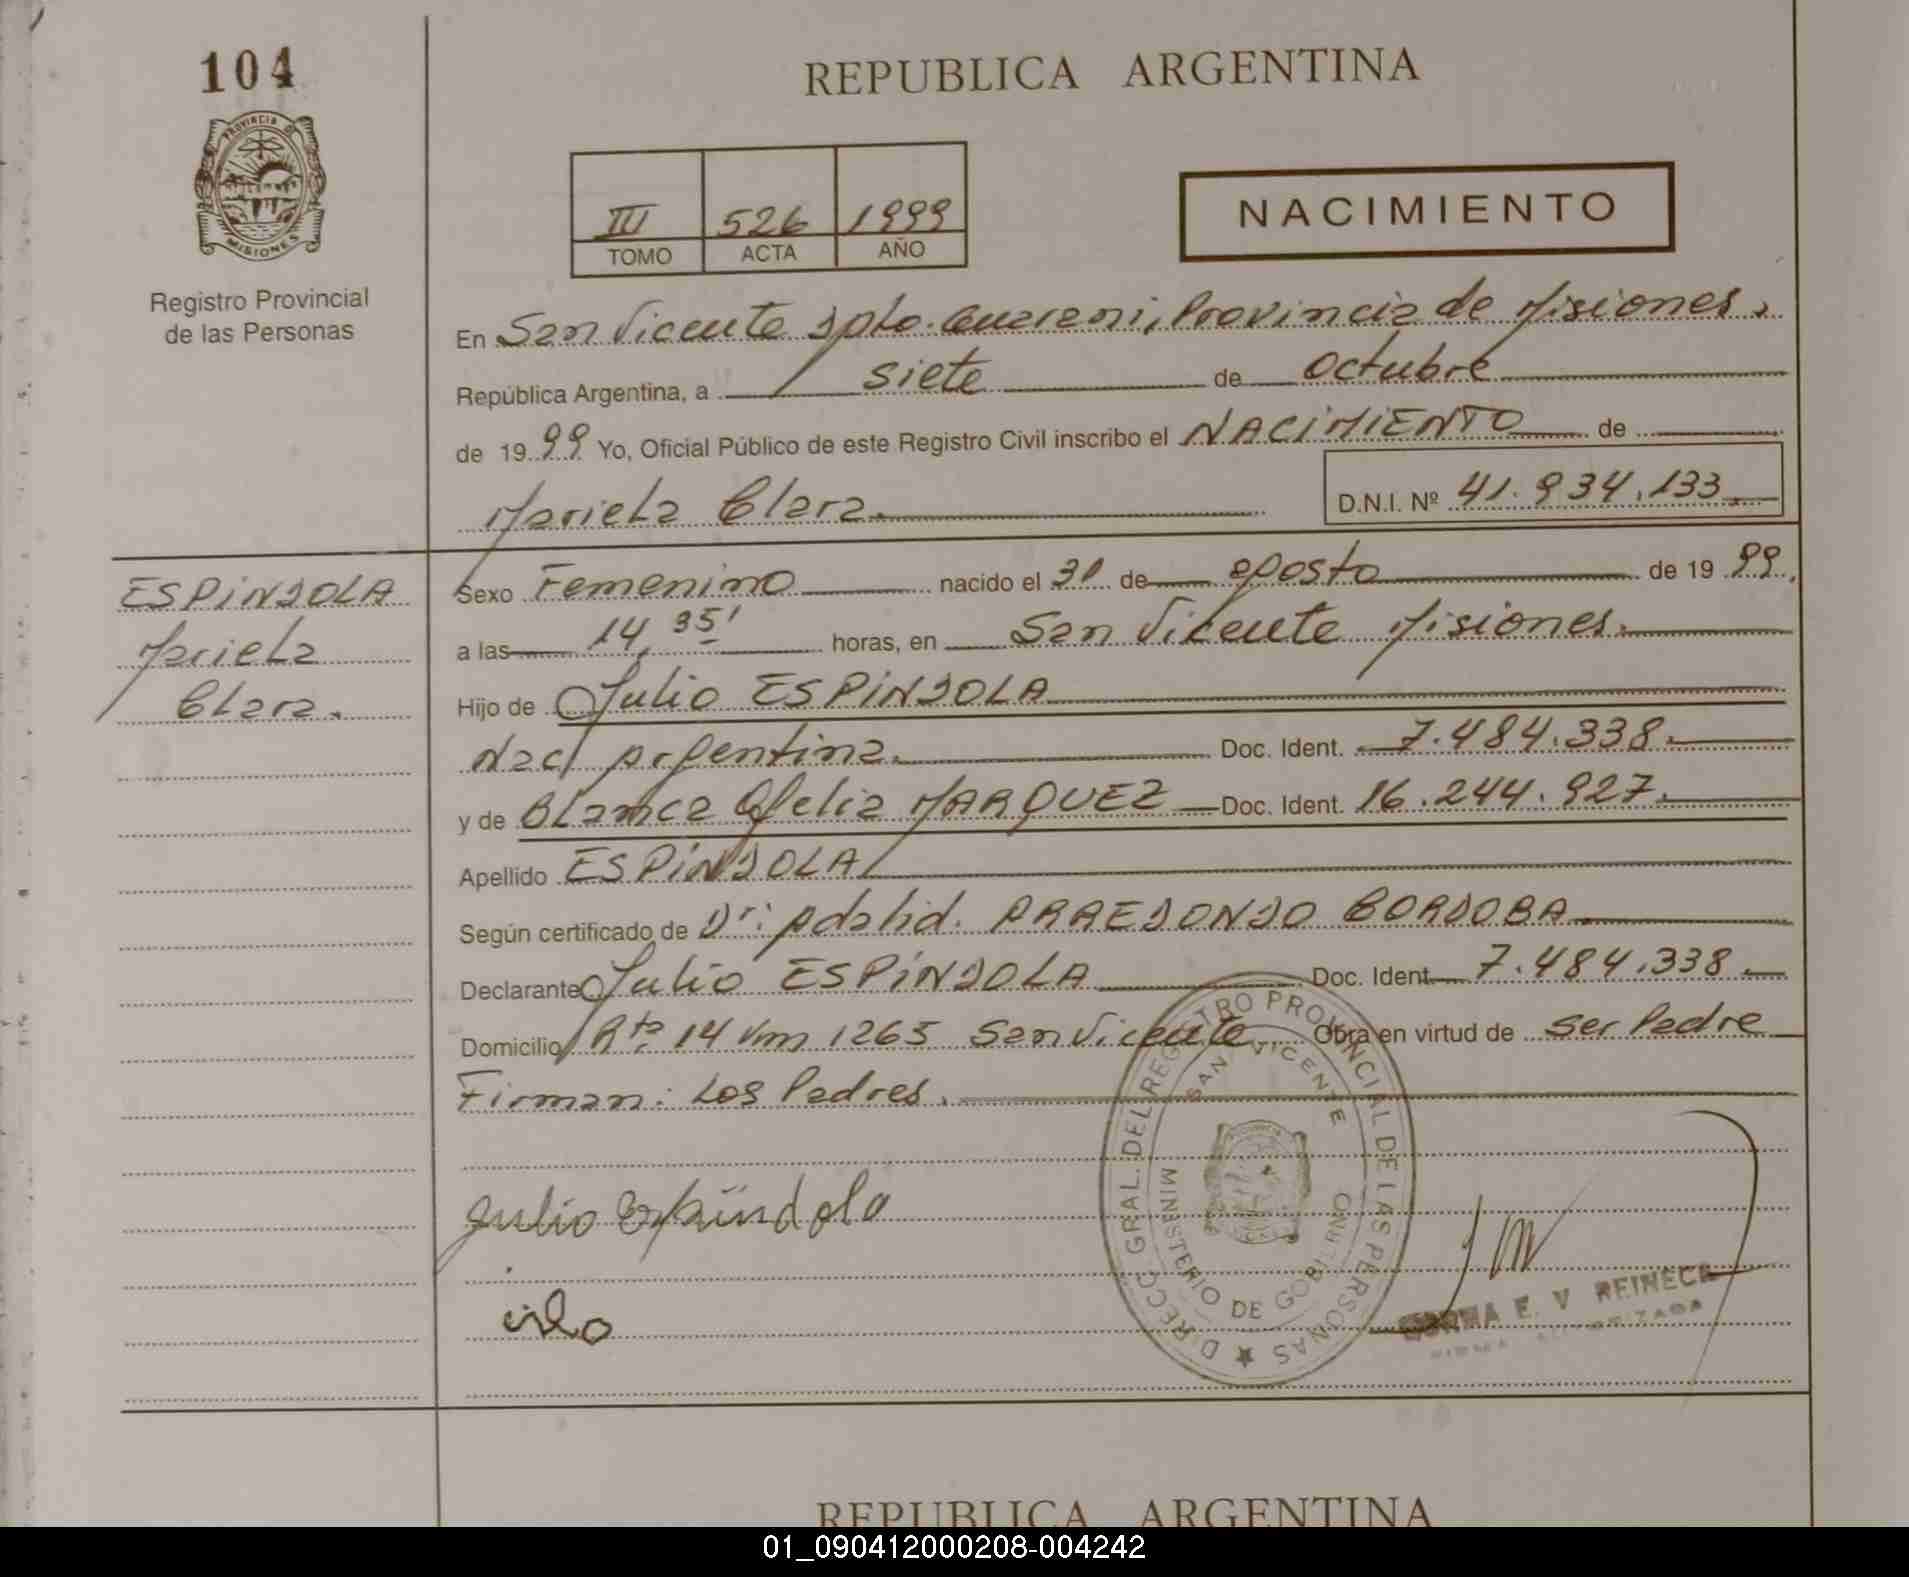 104
REPUBLICA ARGENTINA
PROVINCIA DE
MISIONES
Registro Provincial
de las Personas
III 526 1999
TOMO ACTA AÑO
NACIMIENTO
En San Vicente Dpto. Guarani, Provincia de Misiones,
República Argentina, a siete de octubre
de 1999 Yo, Oficial Público de este Registro Civil inscribo el NACIMIENTO de
Mariela Clara. D.N.I. Nº 41.934.133
ESPINDOLA
Mariela
Clara.
Sexo Femenino nacido el 31 de agosto de 1999.
a las 14,35' horas, en San Vicente Misiones.
Hijo de Julio ESPINDOLA
Nac/ Argentina. Doc. Ident. 7.484.338.
y de Blanca Ofelia MARQUEZ Doc. Ident. 16.244.927.
Apellido ESPINDOLA
Según certificado de Dr: Adalid. ARREDONDO CORDOBA.
Declarante Julio ESPINDOLA Doc. Ident. 7.484.338.
Domicilio Rta 14 Km 1265 San Vicente Obra en virtud de ser Padre
Firman: Los Padres.
DIRECC. GRAL. DEL REGISTRO PROVINCIAL DE LAS PERSONAS
SAN VICENTE
MINISTERIO DE GOBIERNO
Julio Espíndola
NORMA E. V. REINECK
REPUBLICA ARGENTINA
01_090412000208-004242